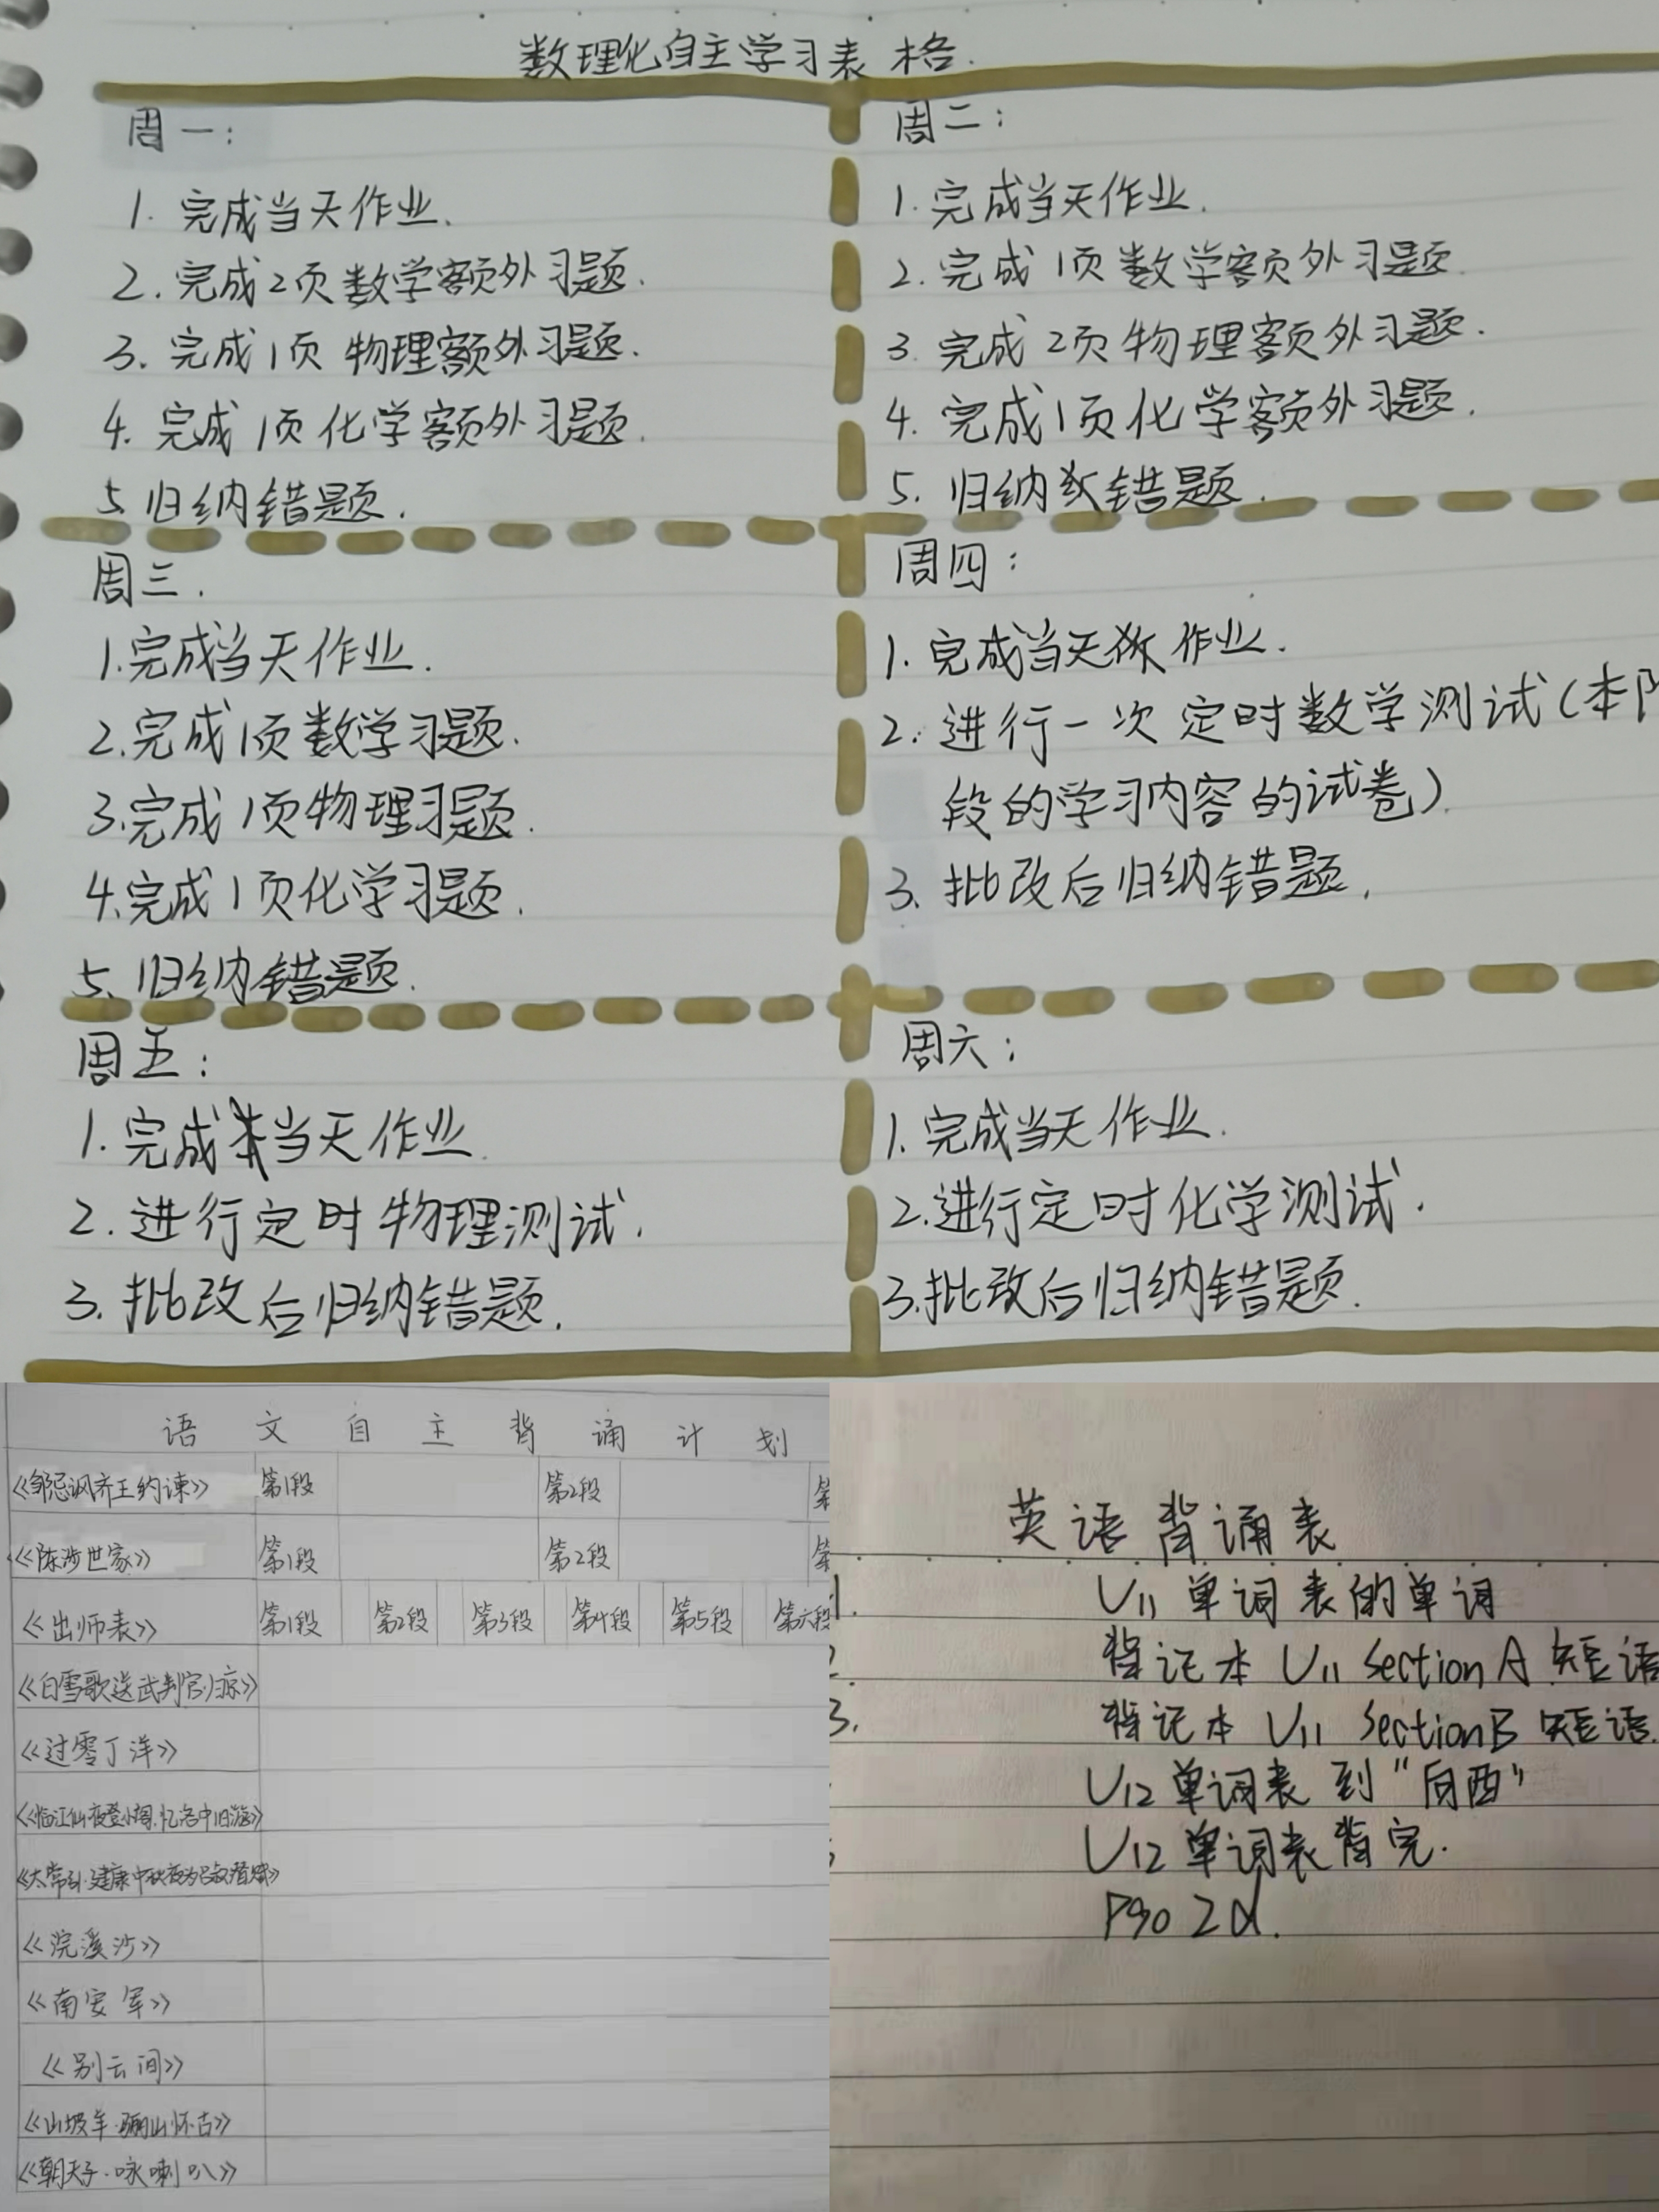 数理化自主学习表格.
周一:
1. 完成当天作业.
2. 完成2页数学额外习题.
3. 完成1页物理额外习题.
4. 完成1页化学额外习题.
5 归纳错题.
周二:
1. 完成当天作业.
2. 完成1页数学额外习题.
3. 完成2页物理额外习题.
4. 完成1页化学额外习题.
5. 归纳错题.
周三.
1.完成当天作业.
2.完成1页数学习题.
3.完成1页物理习题.
4.完成1页化学习题.
5、归纳错题.
周四:
1. 完成当天作业.
2. 进行一次定时数学测试(本阶
段的学习内容的试卷)
3. 批改后归纳错题.
周五:
1. 完成当天作业.
2. 进行定时物理测试.
3. 批改后归纳错题.
周六:
1. 完成当天作业.
2.进行定时化学测试.
3.批改后归纳错题.
语文自主背诵计划
《邹忌讽齐王纳谏》 第1段 第2段 第
《陈涉世家》 第1段 第2段 第
《出师表》 第1段 第2段 第3段 第4段 第5段 第六段
《白雪歌送武判官归京》
《过零丁洋》
《临江仙·夜登小阁,忆洛中旧游》
《太常引·建康中秋夜为吕叔潜赋》
《浣溪沙》
《南安军》
《别云间》
《山坡羊·骊山怀古》
《朝天子·咏喇叭》
英语背诵表
1. U11 单词表的单词
2 背记本 U11 Section A 短语
3. 背记本 U11 Section B 短语.
U12 单词表到"向西"
U12 单词表背完.
P90 2d.